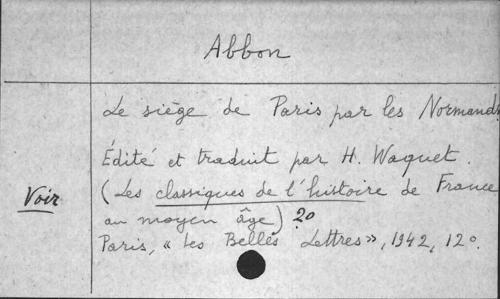 Abbon
Le siège de Paris par les Normands
Édité et traduit par H. Waquet.
(Les classiques de l'histoire de France
Voir
au moyen âge) 20
Paris, « Les Belles Lettres », 1942, 12°.